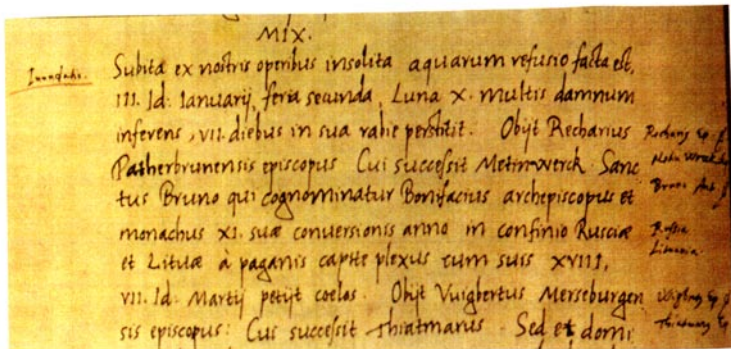 MIX.
Inundatio.
Subita ex nostris operibus insolita aquarum refusio facta est,
III. Id: Ianuarij, feria secunda, Luna X. multis damnum
inferens, VII. diebus in sua rabie perstitit. Obijt Recharius
Patherbrunensis episcopus Cui successit Metinwerck. Sanc
tus Bruno qui cognominatur Bonifacius archepiscopus et
monachus XI. suæ conversionis anno in confinio Rusciæ
et Lituæ à paganis capite plexus cum suis XVIII,
VII. Id: Martij petijt coelos. Obijt Vuigbertus Merseburgen
sis episcopus: Cui successit Thiatmarus. Sed et domi
Bruno
Russia
Lituania.